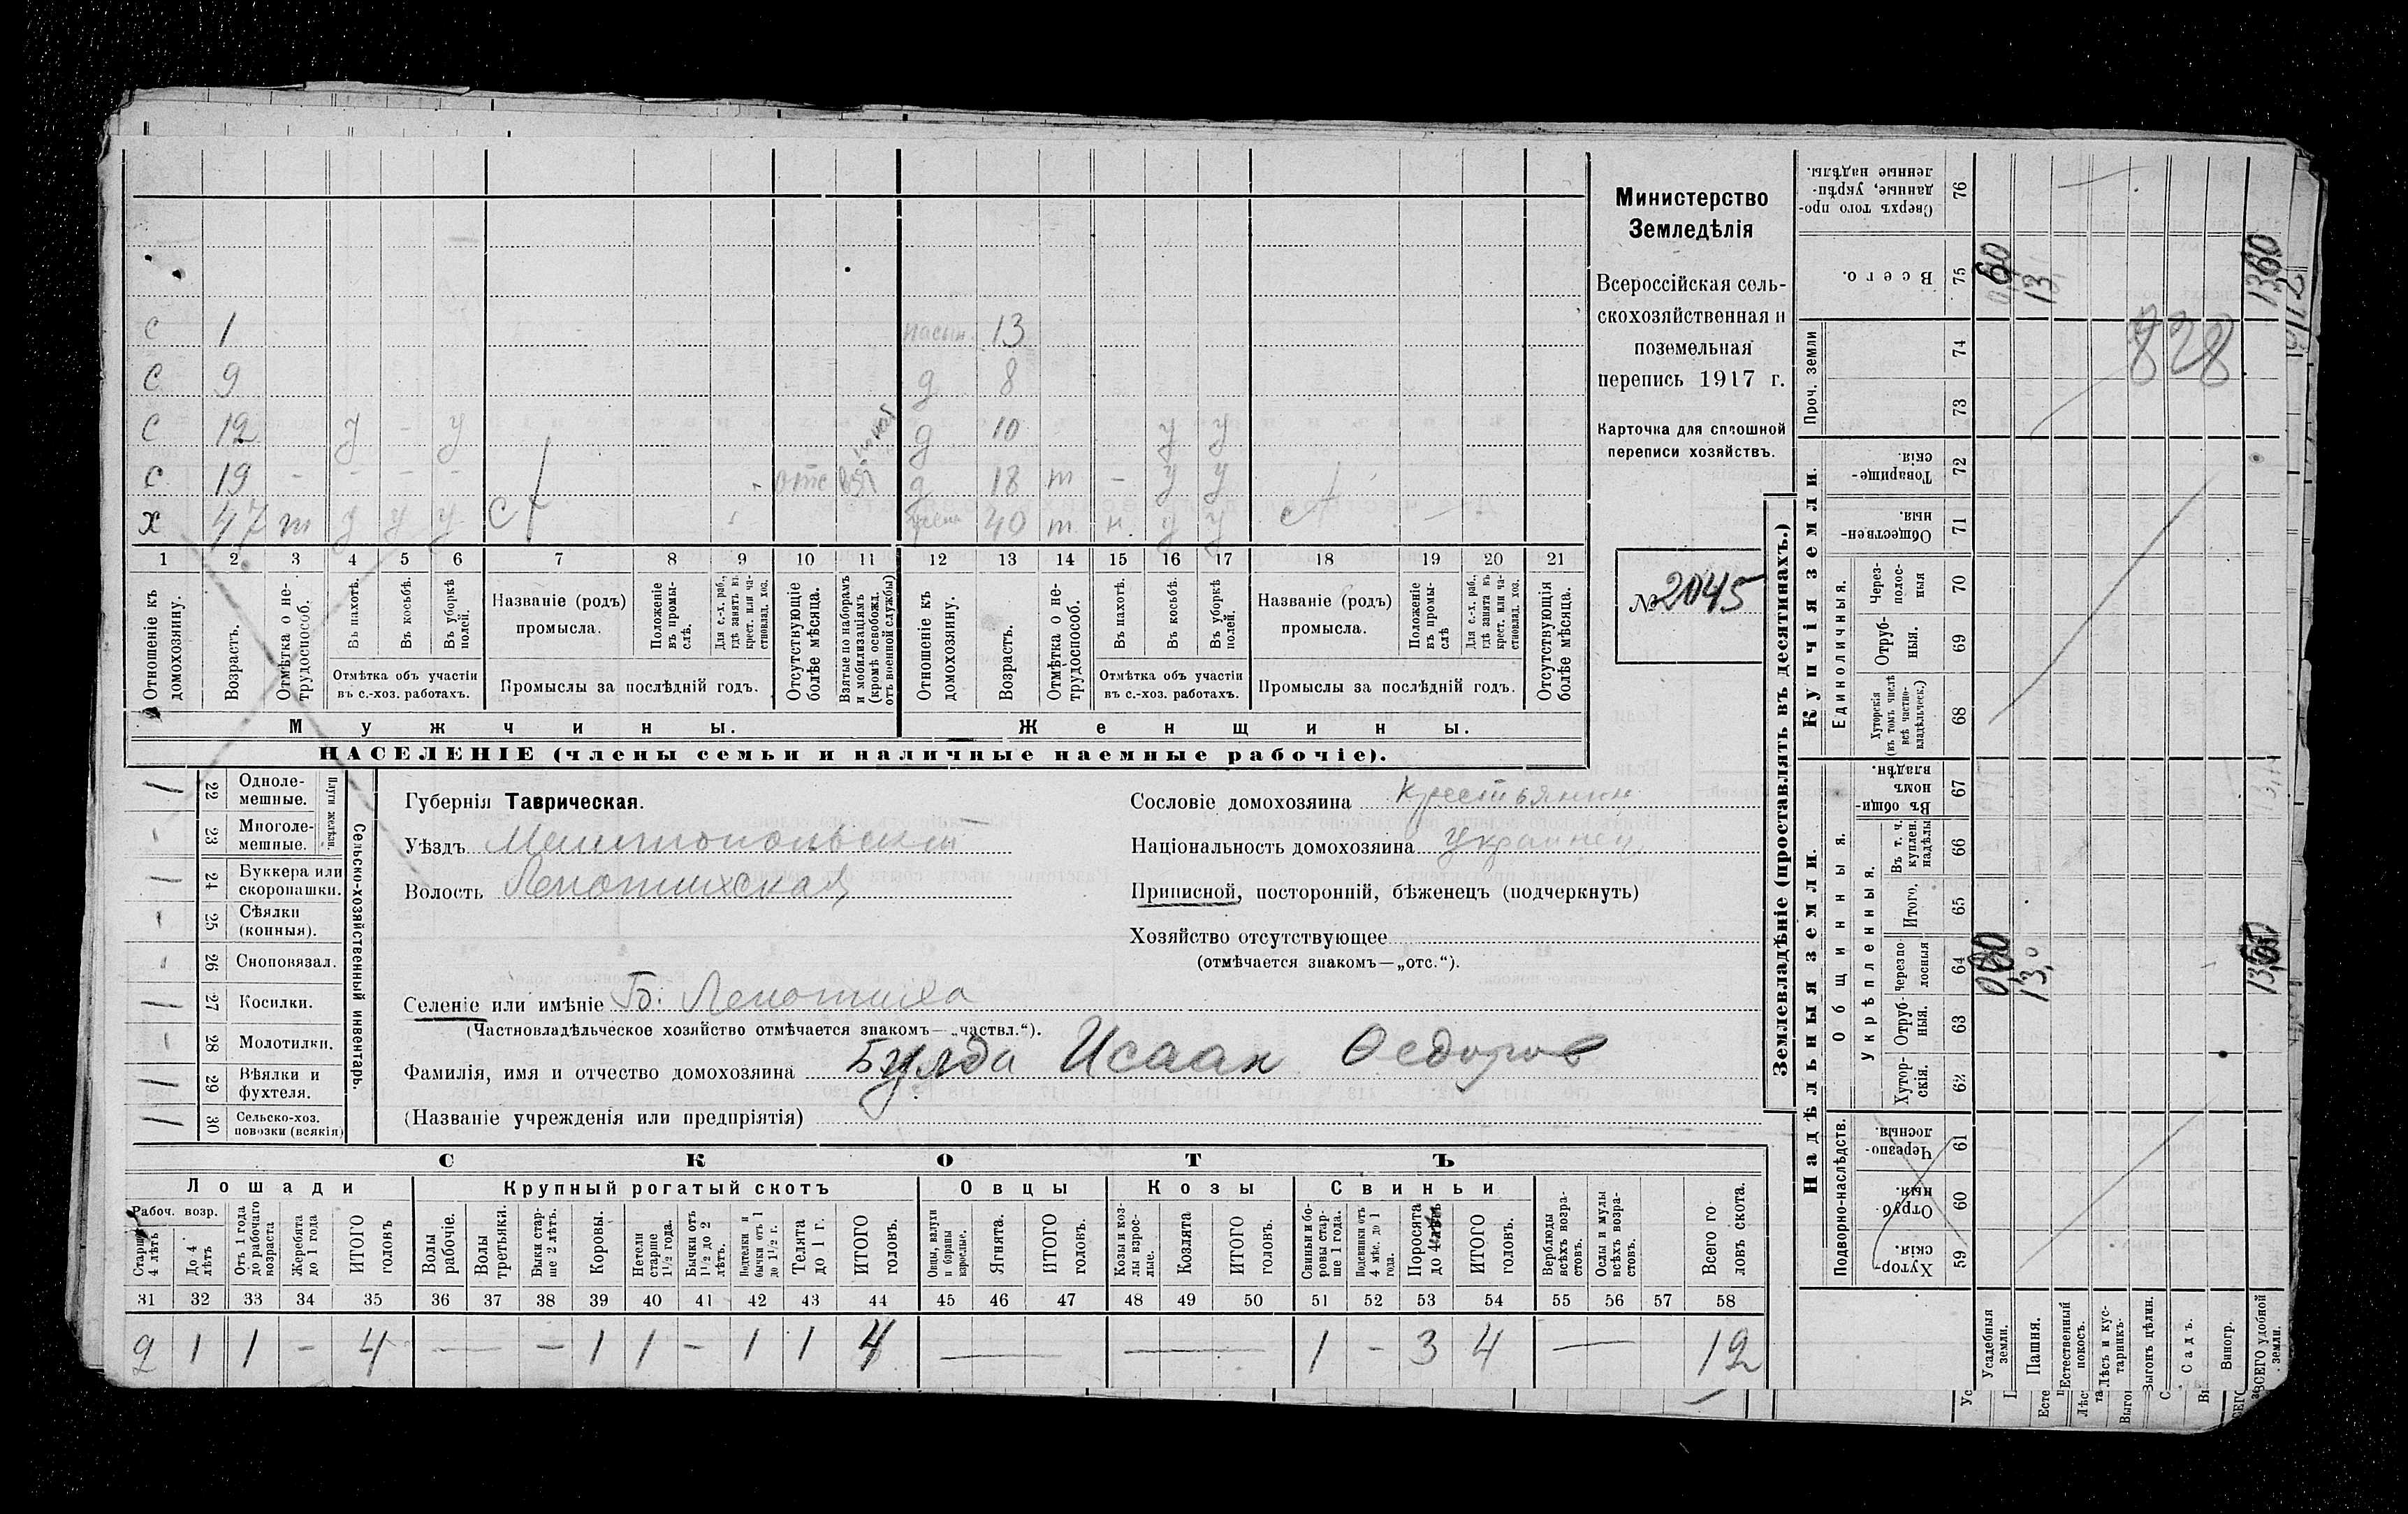 Министерство
Земледѣлія
Всероссійская сель-
скохозяйственная и
поземельная
перепись 1917 г.
Карточка для сплошной
переписи хозяйствъ.
№ 2045
с 1 13
с 9 д 8
с 12 у - у д 10 у у
с 19 - - - - - отс взят д 18 т - у у
х 47 т у у у с/х жена 40 т н у у с/х
1 2 3 4 5 6 7 8 9 10 11 12 13 14 15 16 17 18 19 20 21
Отношеніе къ домохозяину.
Возрастъ.
Отмѣтка о не-трудоспособ.
Въ пахотѣ.
Въ косьбѣ.
Въ уборкѣ полей.
Отмѣтка объ участіи
въ с.-хоз. работахъ.
Названіе (родъ)
промысла.
Положеніе въ промы-слѣ.
Для с.-х. раб., гдѣ занятъ въ крест. или ча-стновлад. хоз.
Промыслы за послѣдній годъ.
Отсутствующіе болѣе мѣсяца.
Взятые по наборамъ и мобилизаціямъ (кромѣ освобожд. отъ военной службы)
Отношеніе къ домохозяину.
Возрастъ.
Отмѣтка о не-трудоспособ.
Въ пахотѣ.
Въ косьбѣ.
Въ уборкѣ полей.
Отмѣтка объ участіи
въ с.-хоз. работахъ.
Названіе (родъ)
промысла.
Положеніе въ промы-слѣ
Для с.-х. раб., гдѣ занята въ крест. или ча-стновлад. хоз.
Промыслы за послѣдній годъ.
Отсутствующія болѣе мѣсяца.
Мужчины.
Женщины.
НАСЕЛЕНІЕ (члены семьи и наличные наемные рабочіе).
Сельско-хозяйственный инвентарь.
Плуги желѣзн.
1 22 Одноле-мешные.
- 23 Многоле-мешные.
1 24 Буккера или скоропашки.
- 25 Сѣялки (конныя).
26 Сноповязал.
1 27 Косилки.
- 28 Молотилки.
1 29 Вѣялки и фухтеля.
1 30 Сельско-хоз. повозки (всякія)
Губернія Таврическая.
Уѣздъ Мелитопольский
Волость Лепатихская
Сословіе домохозяина крестьянин
Національность домохозяина украинец
Приписной, посторонній, бѣженецъ (подчеркнуть)
Хозяйство отсутствующее
(отмѣчается знакомъ—„отс.“).
Селеніе или имѣніе Б. Лепатиха
(Частновладѣльческое хозяйство отмѣчается знакомъ—„частвл.“).
Фамилія, имя и отчество домохозяина Булда Исаак Федоров
(Названіе учрежденія или предпріятія)
СКОТЪ
Лошади
Крупный рогатый скотъ
Овцы
Козы
Свиньи
Рабоч. возр.
Старше 4 лѣтъ
До 4 лѣтъ
Отъ 1 года до рабочаго возраста
Жеребята до 1 года
ИТОГО головъ
Волы рабочіе.
Волы третьяки.
Быки стар-ше 2 лѣтъ.
Коровы.
Нетели старше 1½ года.
Бычки отъ 1½ до 2 лѣтъ.
Подтелки и бычки отъ 1 до 1½ г.
Телята до 1 г.
ИТОГО головъ.
Овцы, валухи и бараны взрослые.
Ягнята.
ИТОГО головъ.
Козы и коз-лы взрос-лые.
Козлята
ИТОГО головъ.
Свиньи и бо-ровы стар-ше 1 года.
Подсвинки отъ 4 мѣс. до 1 года.
Поросята до 4
ИТОГО головъ.
Верблюды всѣхъ возра-стовъ.
Ослы и мулы всѣхъ возра-стовъ.
Всего го-ловъ скота.
31 32 33 34 35 36 37 38 39 40 41 42 43 44 45 46 47 48 49 50 51 52 53 54 55 56 57 58
2 1 1 - 4 — - 1 1 - 1 1 4 — — 1 - 3 4 — 12
Землевладѣніе (проставлять въ десятинахъ.)
Купчія земли.
Надѣльныя земли.
Сверхъ того про-данные, укрѣп-ленные надѣлы. 76
Всего. 75 13
Проч. земли
74
73
Товарище-скія. 72
Обществен-ныя. 71
Единоличныя.
Через-полос-ныя 70
Отруб-ныя. 69
Хуторскія (въ томъ числѣ всѣ частно-владѣльческ.) 68
Общинныя.
Въ общи-номъ владѣн. 67
Укрѣпленныя.
Въ т. ч. куплен. надѣлы 66
Итого. 65
Черезпо-лосныя 64 13,0
Отруб-ныя. 63
Хутор-скія. 62
Подворно-наслѣдств.
Черезпо-лосныя. 61
Отруб-ныя. 60
Хутор-скія. 59
828
Усадебныя земли.
Пашня.
Естественный покосъ.
Лѣсъ и кус-тарникъ.
Выгонъ цѣлин.
Садъ.
Виногр.
ВСЕГО удобной земли.